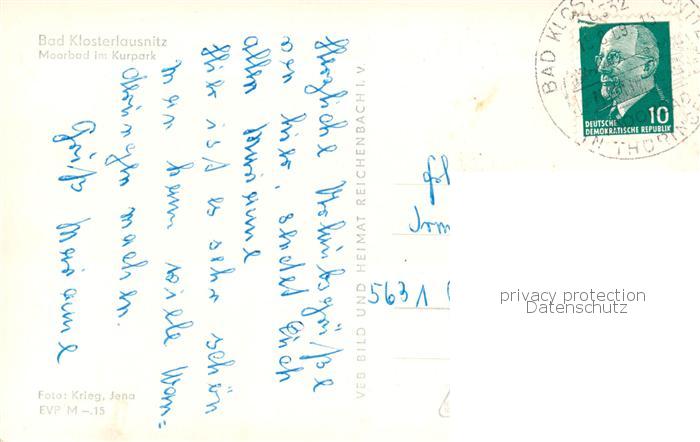 Bad Klosterlausnitz
Moorbad im Kurpark
Herzliche Urlaubsgrüße
von hier, sendet Euch
allen Marianne
Hier ist es sehr schön
man kann viele Wan=
derungen machen.
Gruß Marianne
Foto: Krieg, Jena
EVP M –.15
VEB BILD UND HEIMAT REICHENBACH I. V.
BAD KLOST
IN THÜRING
10
DEUTSCHE
DEMOKRATISCHE REPUBLIK
5631
privacy protection
Datenschutz